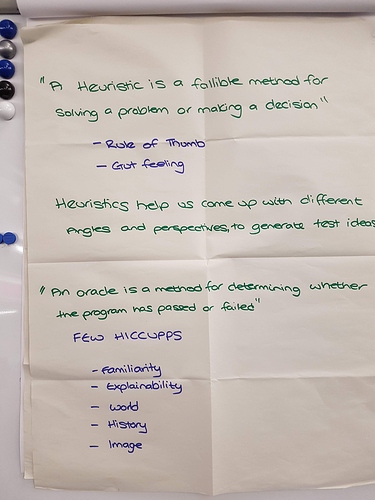 "A Heuristic is a fallible method for
Solving a problem or making a decision"
- Rule of Thumb
- Gut feeling
Heuristics help us come up with different
Angles and perspectives, to generate test ideas
"An oracle is a method for determining whether
the program has passed or failed"
FEW HICCUPPS
- Familiarity
- Explainability
- World
- History
- Image